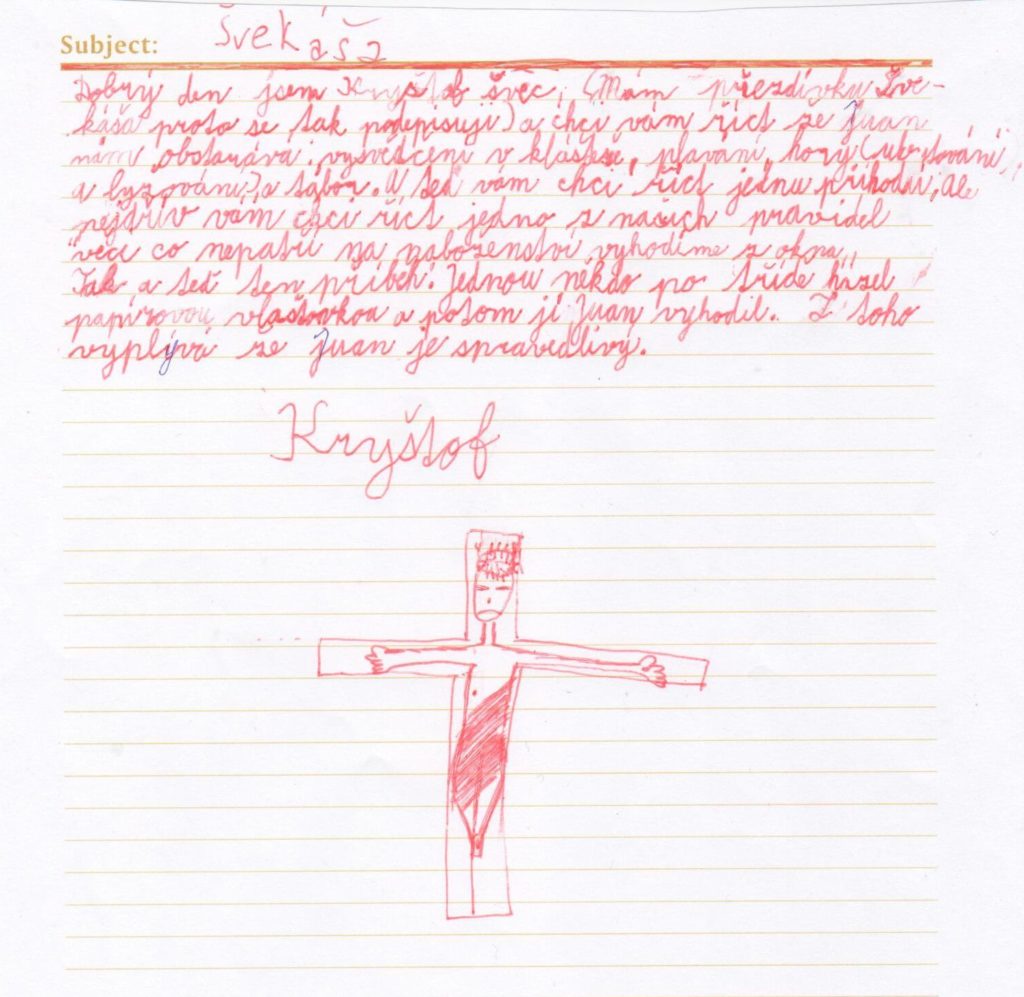 Subject: Švekáša
Dobrý den jsem Kryštof švec, (Mám přezdívku Šve-
káša proto se tak podepisuji) a chci vám říct ze Juan
nám obstarává: vysvědčení v klášteře, plavání, hory
a lyzování) a tábor. A teď vám chci říct jednu příhodu, Ale
nejtřív vám chci říct jedno z našich pravidel
věci co nepatří na nabozenství vyhodíme z okna,,
Tak a teď ten příběh: Jednou někdo po tříde házel
papírovou vlaštovkou a potom ji Juan vyhodil. Z toho
vyplývá ze Juan je spravedlivý.
Kryštof